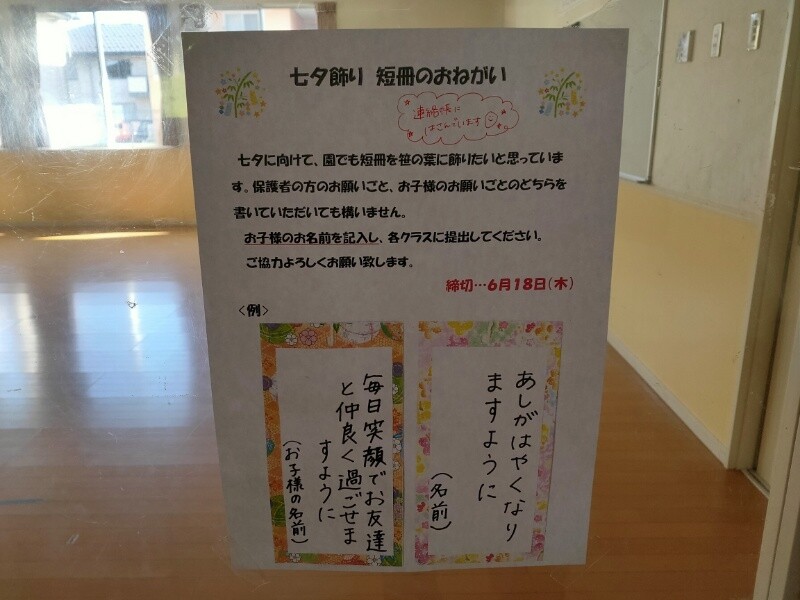 七夕飾り 短冊のおねがい
連絡帳に
はさんでいます
七夕に向けて、園でも短冊を笹の葉に飾りたいと思っていま
す。保護者の方のお願いごと、お子様のお願いごとのどちらを
書いていただいても構いません。
お子様のお名前を記入し、各クラスに提出してください。
ご協力よろしくお願い致します。
締切…6月18日(木)
<例>
あしがはやくなり
ますように
(名前)
毎日笑顔でお友達
と仲良く過ごせま
すように
(お子様の名前)